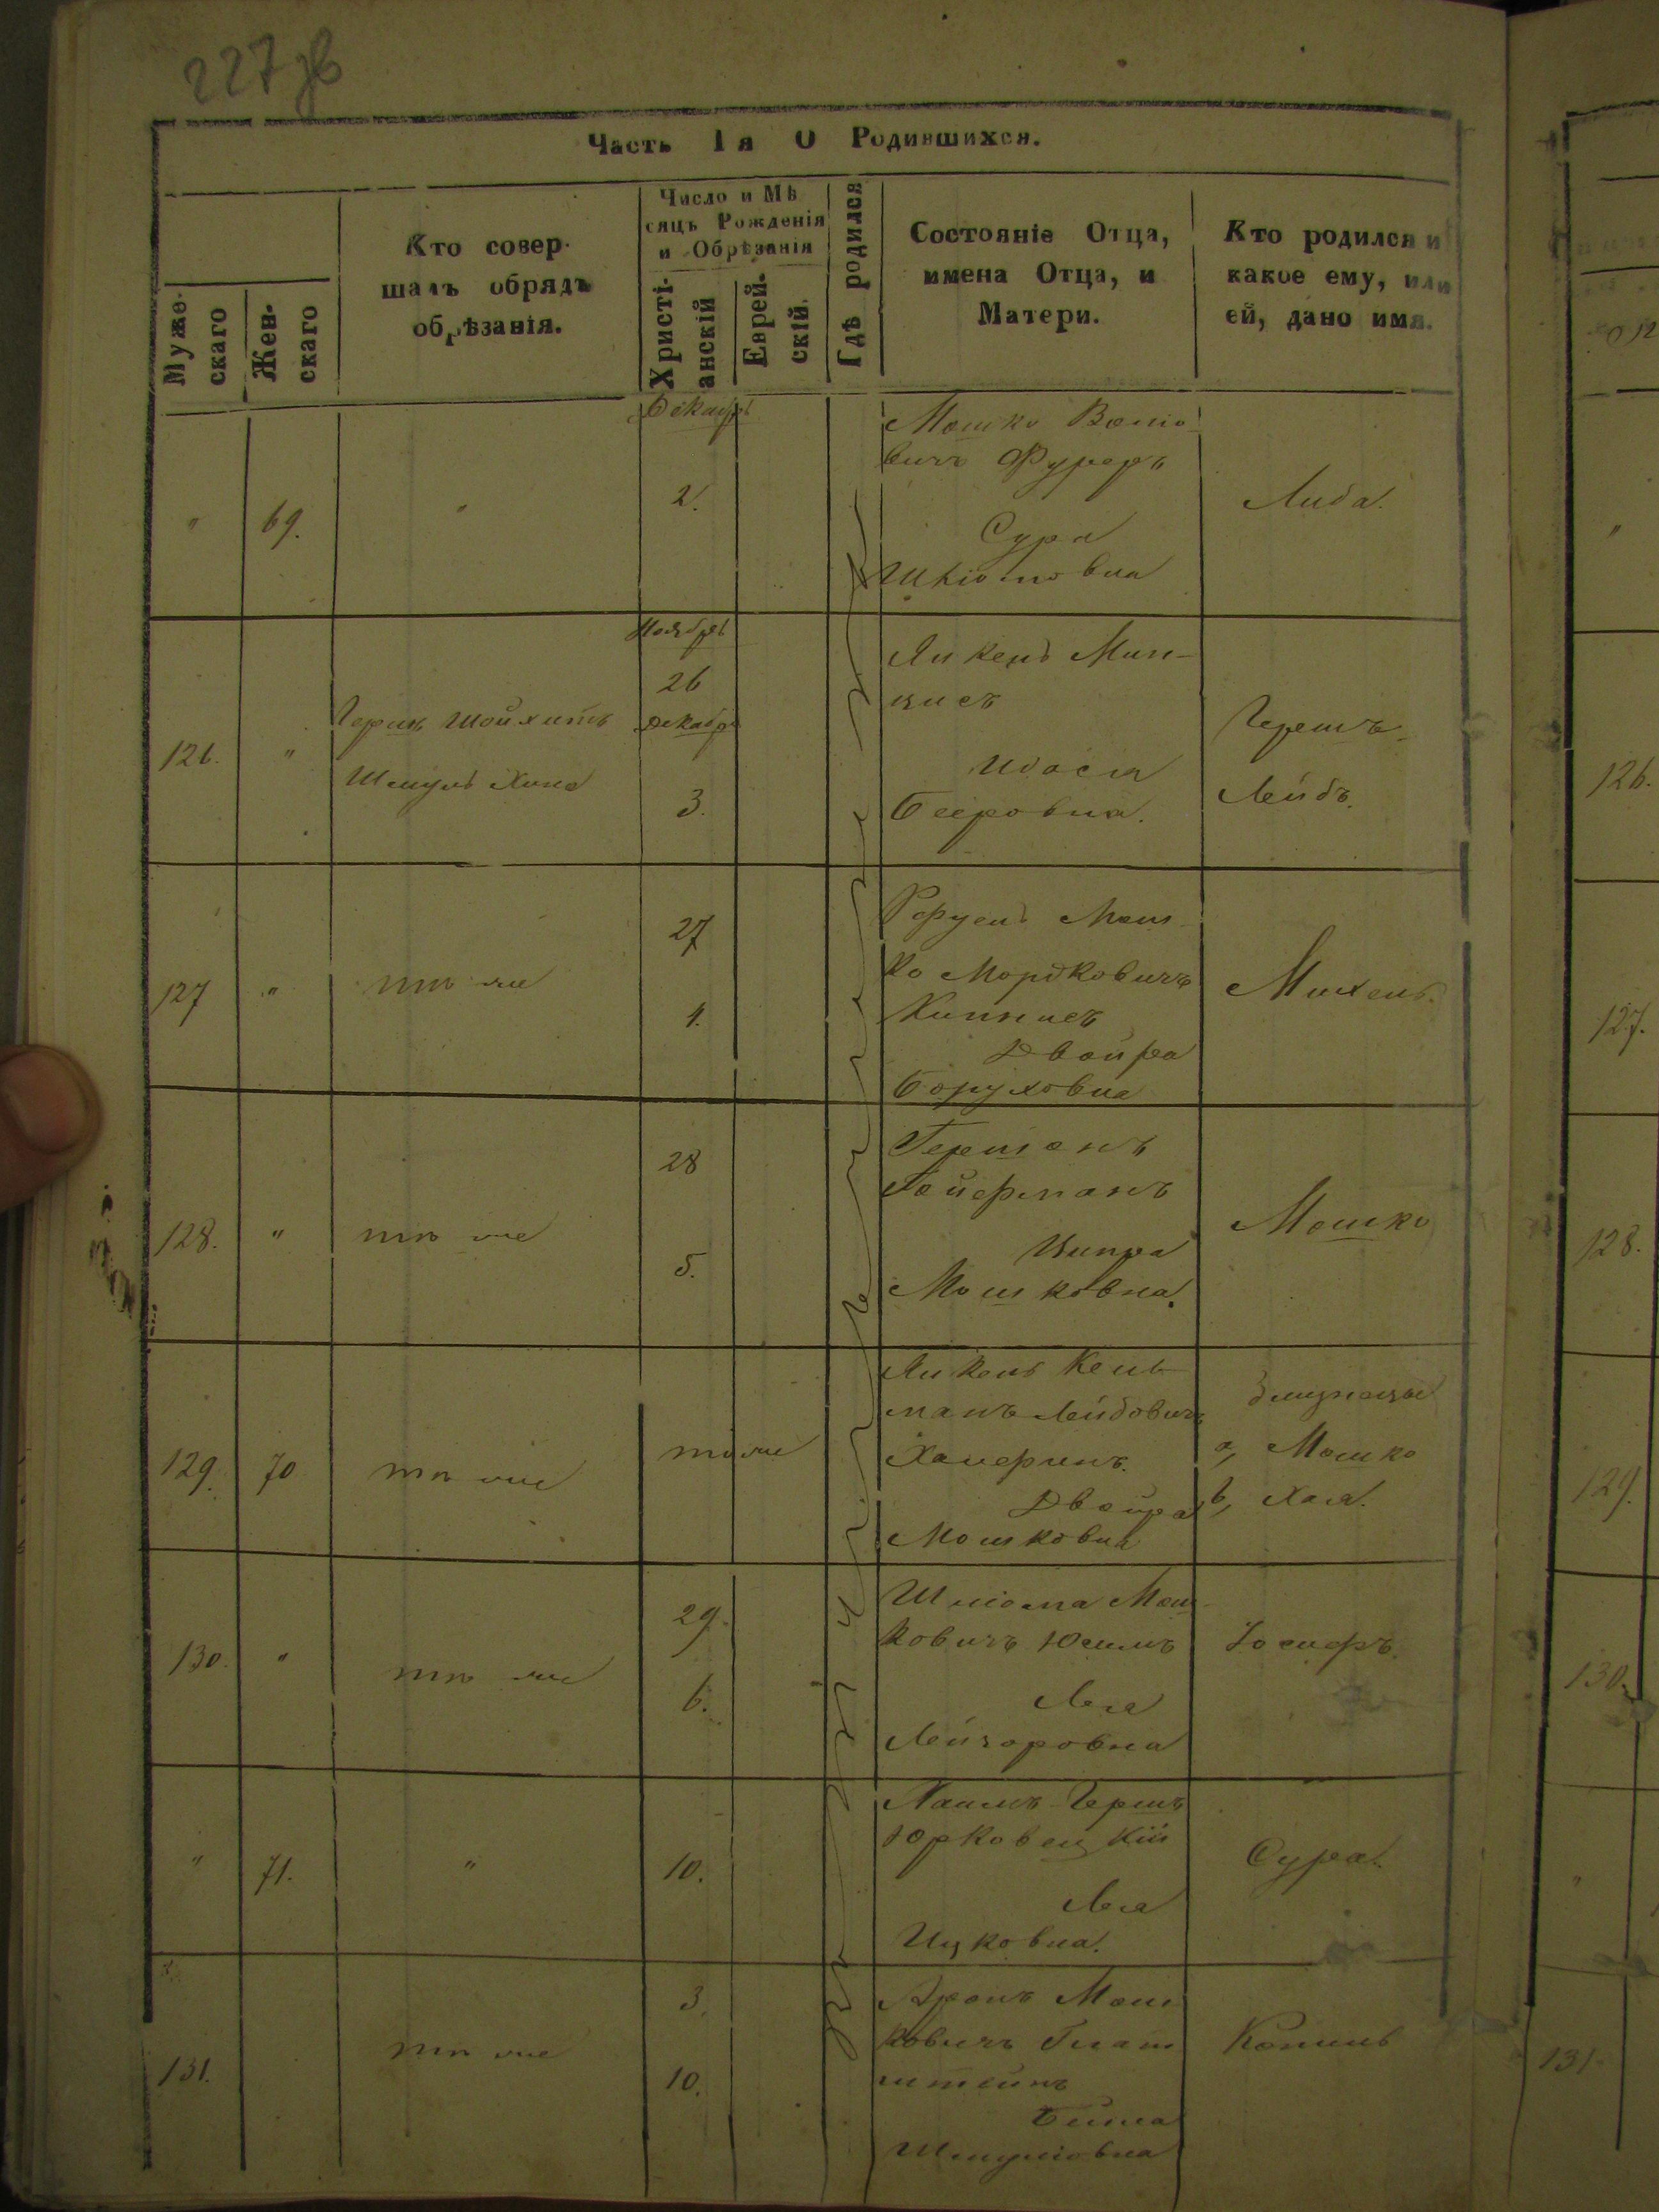 227 зв
Часть Iя О Родившихся.
Муже-
скаго
Жен-
скаго
Кто совер-
шалъ обрядъ
обрѣзанія.
Число и Мѣ
сяцъ Рожденія
и Обрѣзанія
Христі-
анскій
Еврей-
скій.
Гдѣ родился
Состояніе Отца,
имена Отца, и
Матери.
Кто родился и
какое ему, или
ей, дано имя.
"
69.
"
Декабрь
2.
Мошко
вичъ Фуреръ
Сура
Либа.
126.
"
Герш Шойхитъ
Шмуль
Ноябрь
26
Декабрь
3.
Янкель Мин-
цисъ
Идася
Бееровна.
Гершъ
Лейбъ.
127
"
то же
27
4.
Мош-
ко Мордковичъ
Кипнисъ
Двойра
Боруховна
Михель.
128.
"
то же
28
5.
Гершонъ
Гойфманъ
Ципра
Мошковна.
Мошко
129.
70
то же
то же
Янкель Кель-
манъ Лейбовичъ
Двойра
Мошковна
Близнецы
а, Мошко
b, Хая.
130.
"
то же
29.
6.
Шліома Мош-
ковичъ
Лея
Лейзоровна
Іосифъ.
"
71.
"
10.
Хаимъ Гершъ
Юрковецкій
Лея
Ицковна.
Сура.
131.
то же
3.
10.
Аронъ Мош
ковичъ Глат
штейнъ
Бейла
Шмуліовна
Копель
"
126.
127.
128.
129.
130.
"
131.